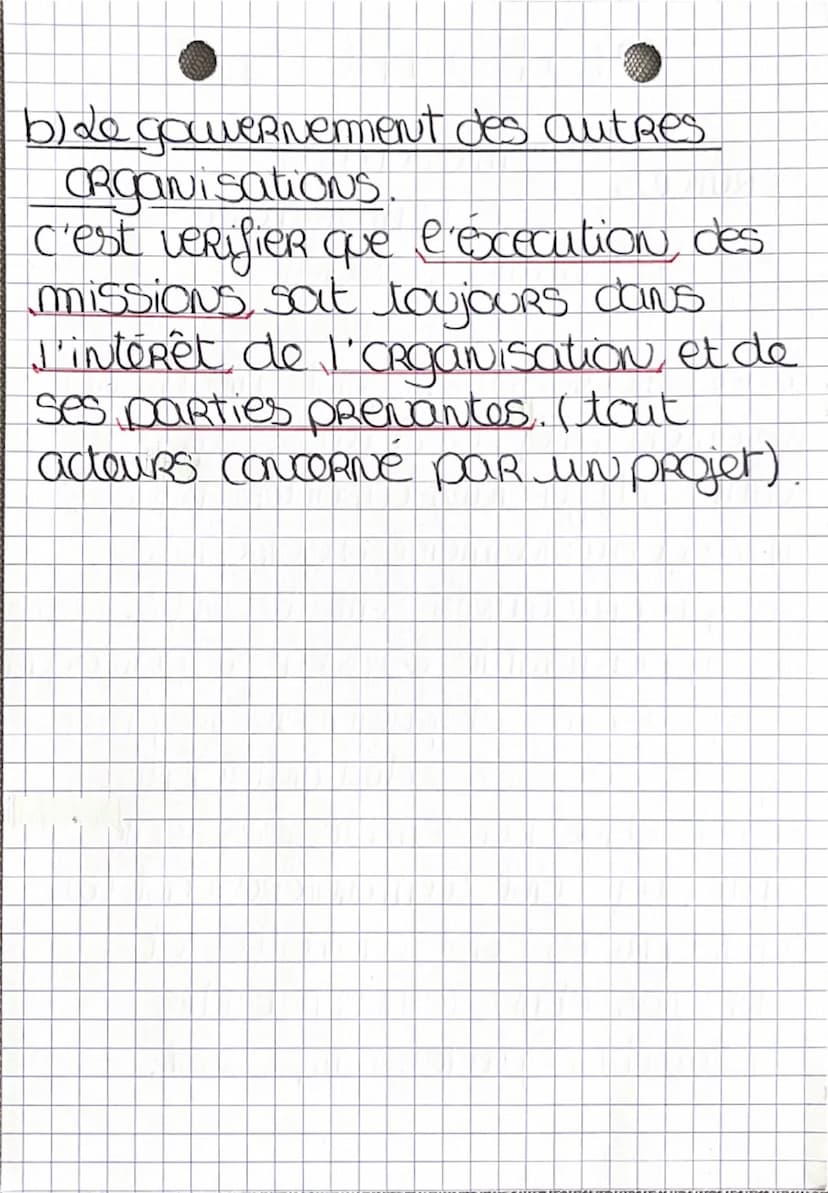 b) Le gouvernement des autres
organisations.
c'est verifier que l'éxecution des
missions soit toujours dans
l'intérêt de l'organisation et de
ses parties prenantes. (tout
acteurs concerné par un projet).